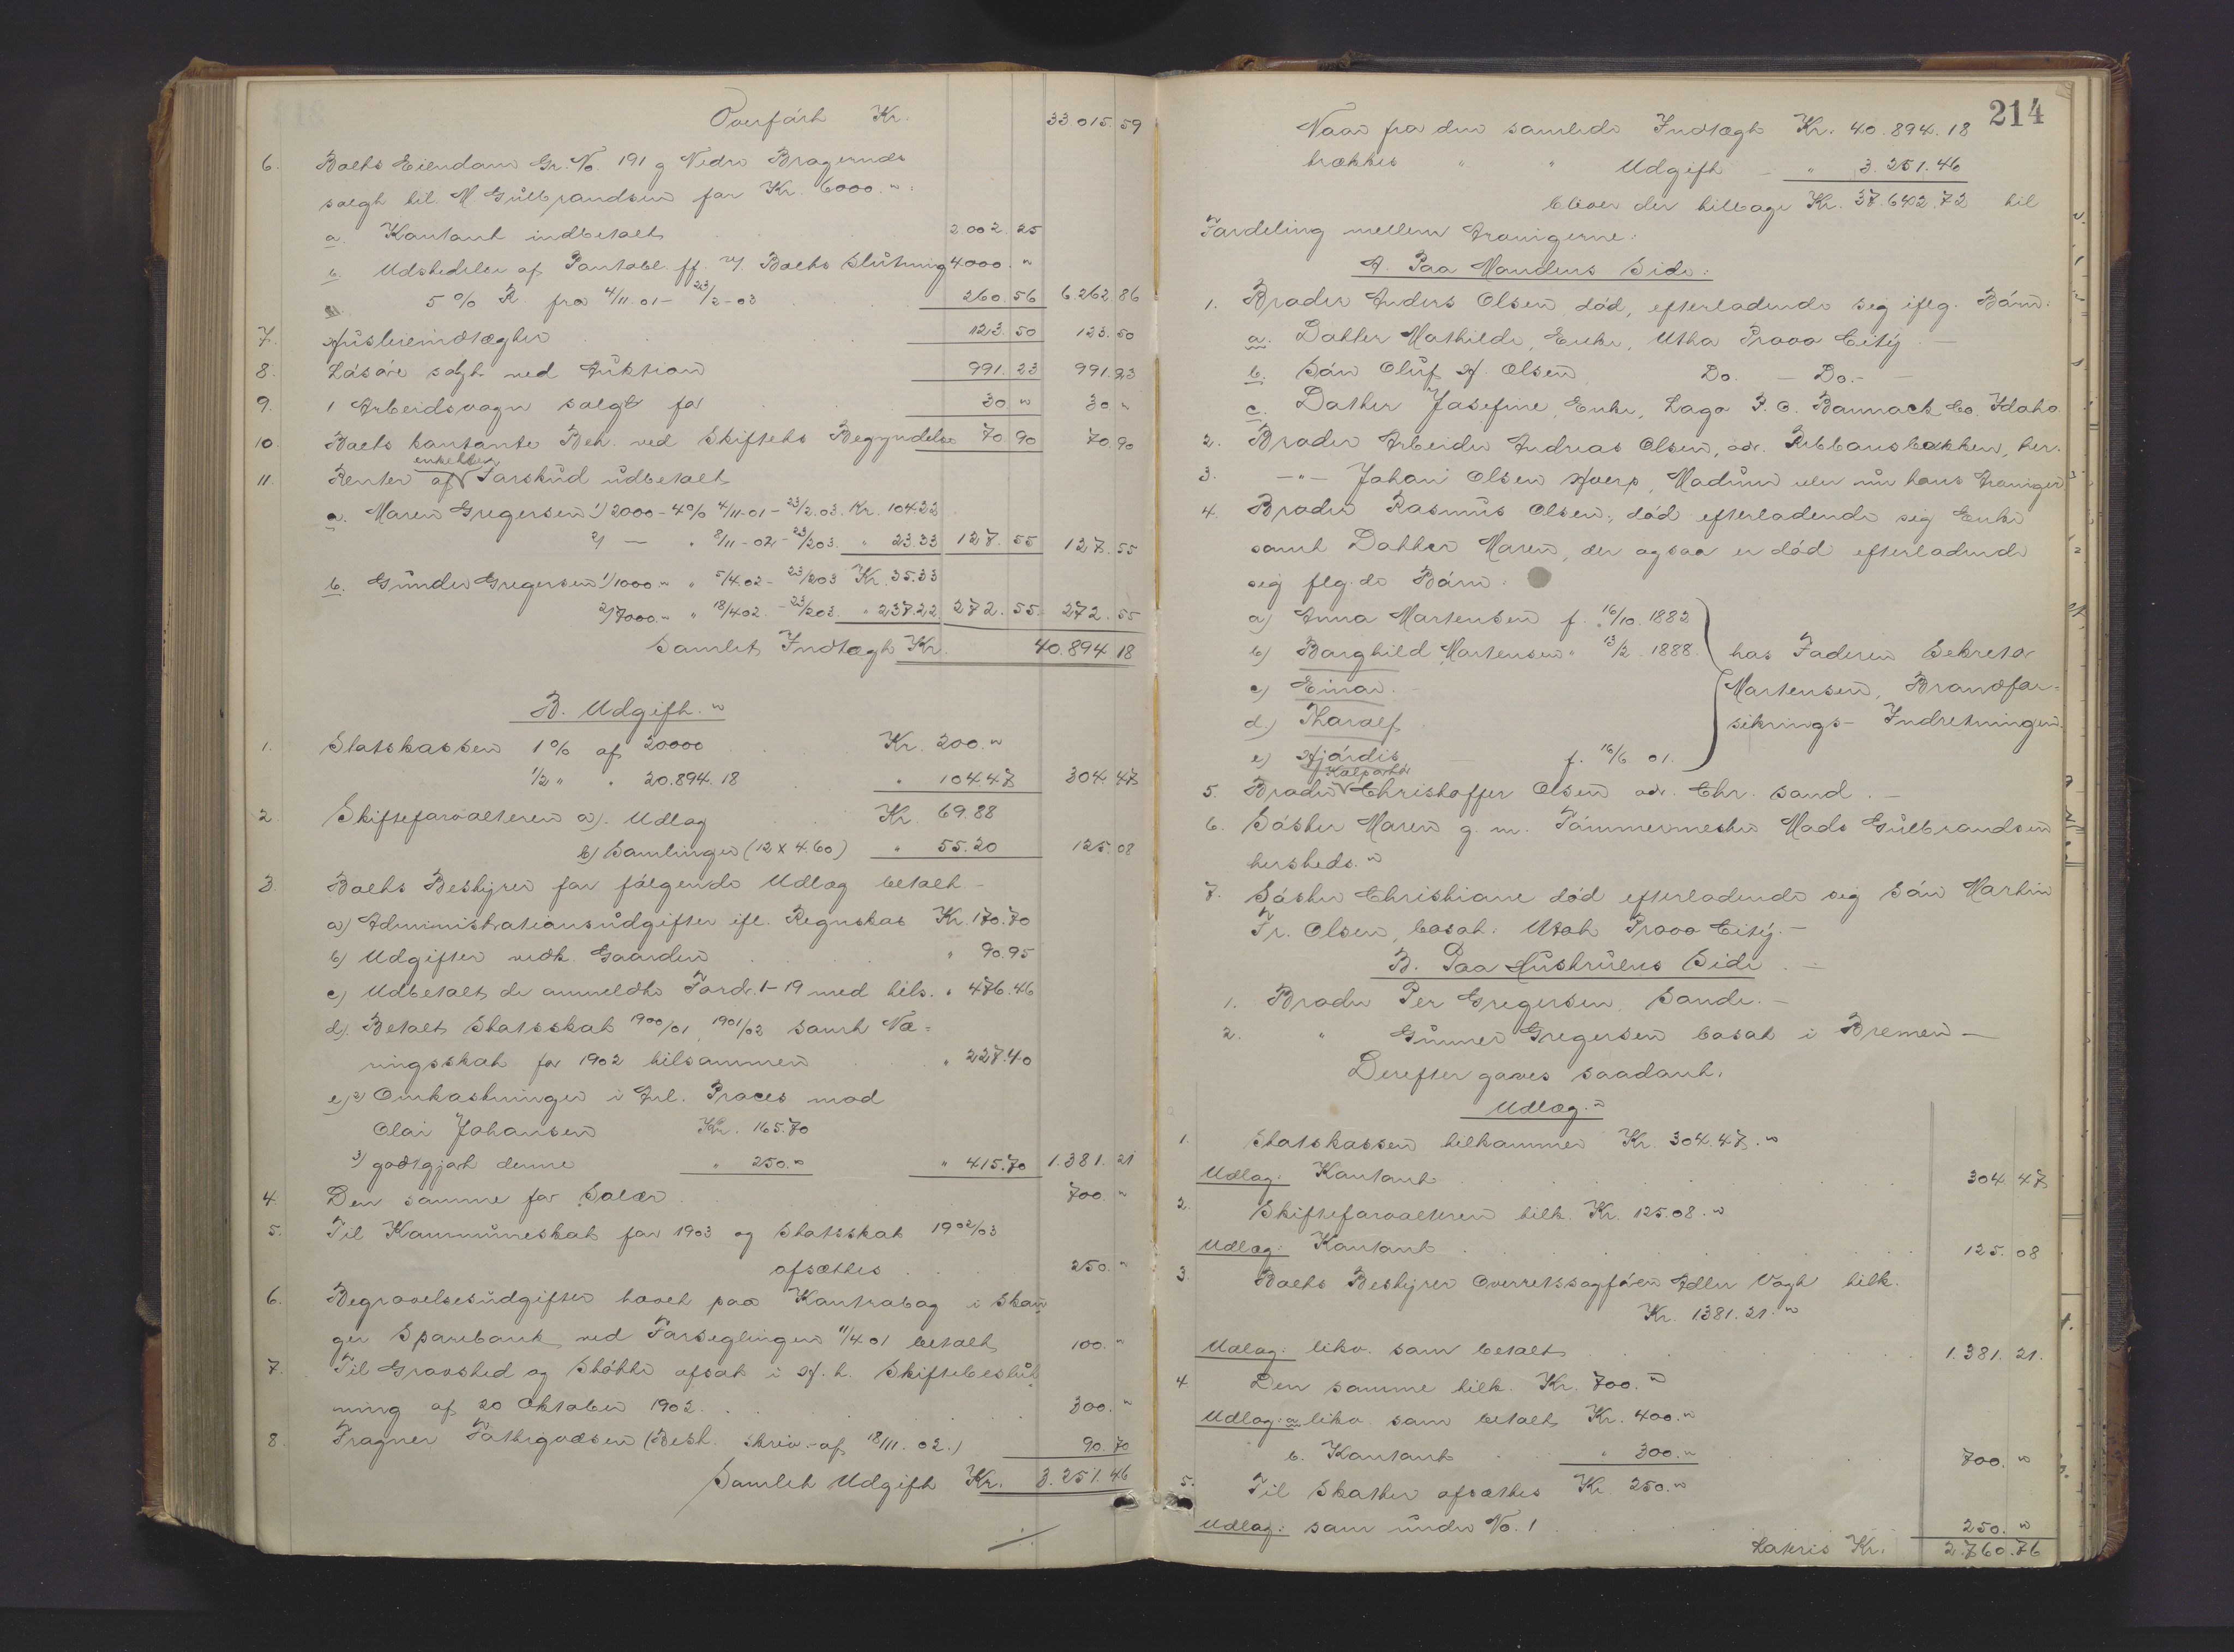 Overført Kr. 33.015.59
6. Boets Eiendom Gr. No. 191 g Nedre Bragernes
solgt til M. Gulbrandsen for Kr. 6000."
a. Kontant indbetalt 2.002.25
b. Udstedelse af Pantobl. ff. Boets Slutning 4000."
5 % R. fra 4/11.01 - 23/2-03 260.56 6.262.86
7. Husleieindtægter 123.50 123.50
8. Løsøre solgt ved Auktion 991.23 991.23
9. 1 Arbeidsvogn solgt for 30" 30"
10. Boets kontante Beh. ved Skiftets Begyndelse 70.90 70.90
enkelte
11. Renter af Forskud udbetalt
a. Maren Gregersen 1) 2000 - 4% 4/11-01 - 23/2.03. Kr. 104.22
2) — " 8/11-02 - 23/203. " 23.33 127.55 127.55
b. Gunder Gregersen 1) 1000" " 5/4.02 - 23/203 Kr. 35.33
2) 7000." " 18/402. - 23/203. " 237.22 272.55 272.55
Samlet Indtægt Kr. 40.894 18
B. Udgift."
1. Statskassen 1% af 20000 Kr. 200."
1/2 " " 20.894.18 " 104.47 304.47
2. Skifteforvalteren a). Udlæg Kr. 69.88
b) Samlinger (12 x 4.60) " 55.20 125.08
3. Boets Bestyrer for følgende Udlæg betalt -
a) Administrationsudgifter ifl. Regnskab Kr. 170.70
b) Udgifter vedk. Gaarden " 90.95
c) Udbetalt de anmeldte Fordr. 1-19 med tils. " 476.46
d). Betalt Statsskat 1900/01, 1901/02 samt Næ-
ringsskat for 1902 tilsammen " 227.40
e) 2) Omkostninger i Anl. Proces mod
Olai Johansen Kr. 165.70
3) godtgjort denne " 250." " 415.70 1.381.21
4. Den samme for Salær 700."
5. Til Kommuneskat for 1903 og Statsskat 1902/03
afsættes 250."
6. Begravelsesudgifter hævet paa Kontrabog i Skou
ger Sparebank ved Forseglingen 11/4.01 betalt 100."
7. Til Gravsted og Støtte afsat i H. t. Skiftebeslut
ning af 20 Oktober 1902. 300."
8. Fragner Fothrgodsen (Best. skriv. af 18/11.02.) 90.70
Samlet Udgift Kr. 3.251.46
214
Naar fra den samlede Indtægt Kr. 40.894.18
trækkes " " Udgift - " 3.251.46
bliver der tilbage Kr. 37.642.72 til
Fordeling mellem Arvingerne:
A. Paa Mandens Side:
1. Broder Anders Olsen død, efterladende sig iflg. Børn:
a. Datter Mathilde, Enke, Utha Provo City. —
b. Søn Oluf A. Olsen Do. — Do. —
c. Datter Josefine, Enke, Lago P. O. Bannack Co. Idaho.
2. Broder Arbeider Andreas Olsen, adr. Ribbansbakken, her.
3. —"— Johan Olsen Hverp, Madum eller nu hans Arvinger
4. Broder Rasmus Olsen, død efterladende sig Enke
samt Datter Maren, der ogsaa er død efterladende
sig flg.de Børn:
a) Anna Martensen f. 16/10. 1882
b) Borghild Martensen " 13/2. 1888. hos Faderen Sekretær
c) Einar. — Martensen, Brandfor-
d.) Thoralf. siknings- Indretningen.
e) Hjørdis — f. 16/6 01.
Kolportør
5. Broder Christoffer Olsen adr. Chr. sand. —
6. Søster Maren g. m. Tømmermester Mads Gulbrandsen
hersteds."
7. Søster Christiane død efterladende sig Søn Martin
Fr. Olsen, bosat: Utah Provo City. —
B. Paa Hustruens Side. —
1. Broder Per Gregersen, Sande. —
2. " Gunner Gregersen bosat i Bremen —
Derefter gjøres saadant:
Udlæg."
1. Statskassen tilkommer Kr. 304.47."
Udlæg: Kontant 304 47
2. Skifteforvalteren tilk. Kr. 125.08."
Udlæg: Kontant 125.08
3. Boets Bestyrer Overretssagfører Adler Vogt tilk.
Kr. 1381.21."
Udlæg: likv. som betalt 1.381.21.
4. Den samme tilk. Kr. 700."
Udlæg: a likv. som betalt Kr. 400."
b. Kontant " 300." 700."
5. Til Skatter afsættes Kr. 250."
Udlæg: som under No. 1 250."
Lateris Kr. 2.760.76